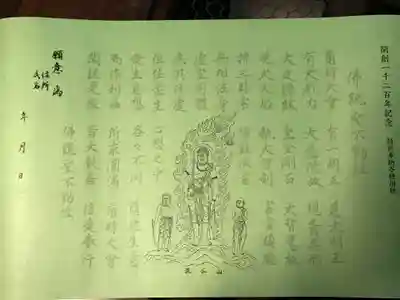 開創一千二百年記念
佛説聖不動経
爾時大會 有一明王 是大明王
有大威力 大悲徳故 現青黒形
大定徳故 坐金剛石 大智慧故
現大火焔 執大智剣 害貪瞋痴
持三昧索 縛難伏者
無相法身
虚空同体
無其住處
但住衆生 心想之中
衆生意想 各々不同 随衆生意
而作利益 所求圓満 爾時大會
聞説是経 皆大歓喜 信受奉行
佛説聖不動経
年 月 日
願意 為
住所
氏名